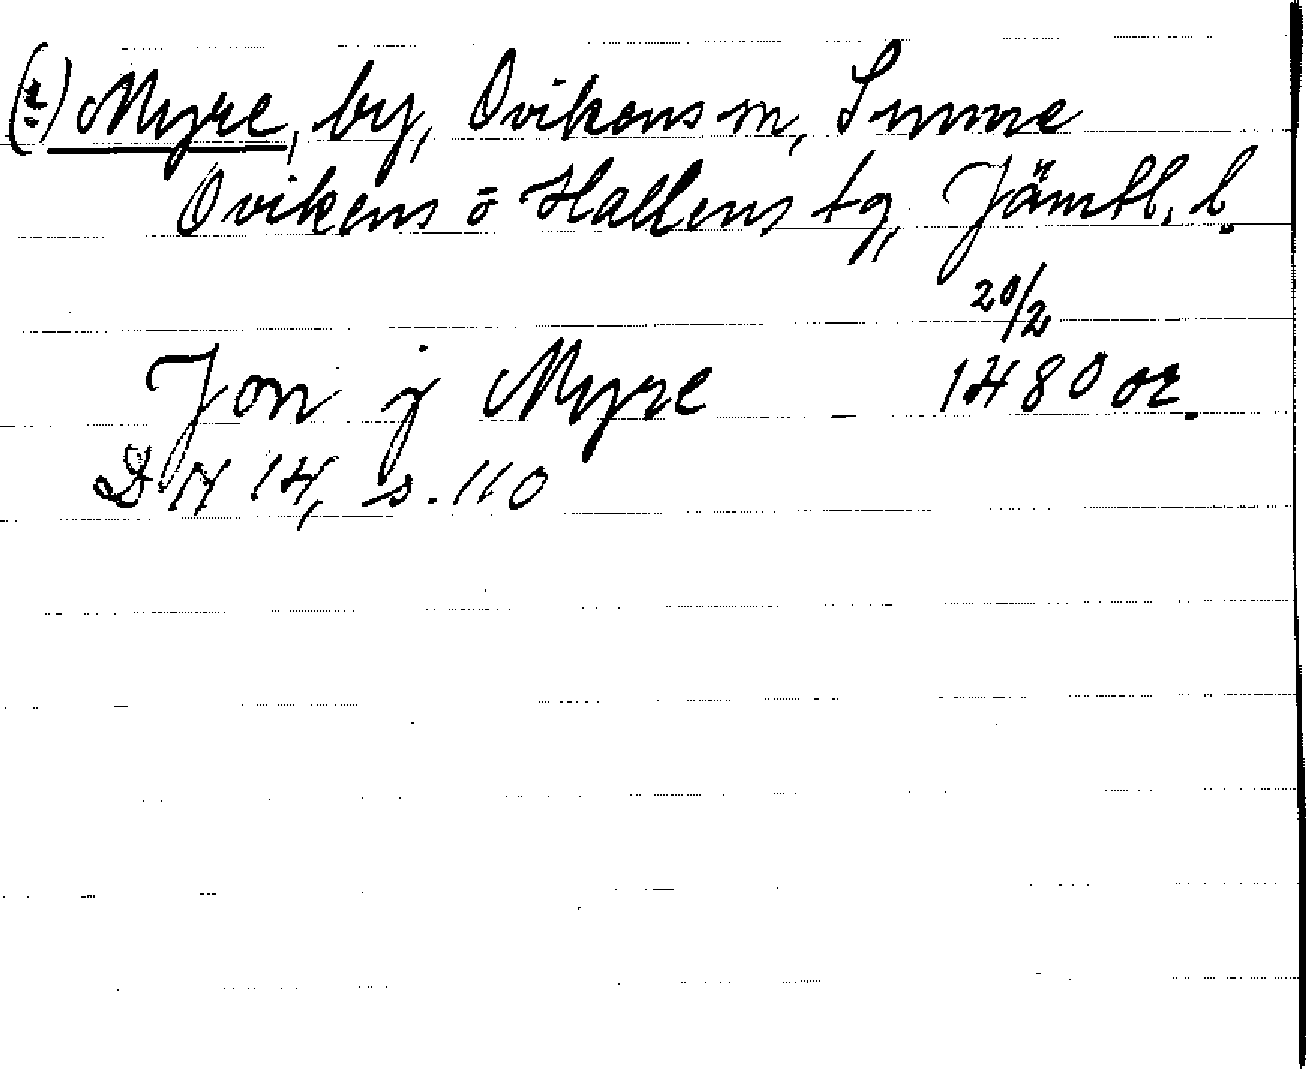 (t) Myre, by, Ovikens sn, Sunne
Ovikens o Hallens tg, Jämtl. l.
20/2
Jon j Myre 1480 or.
DN 14, s. 110